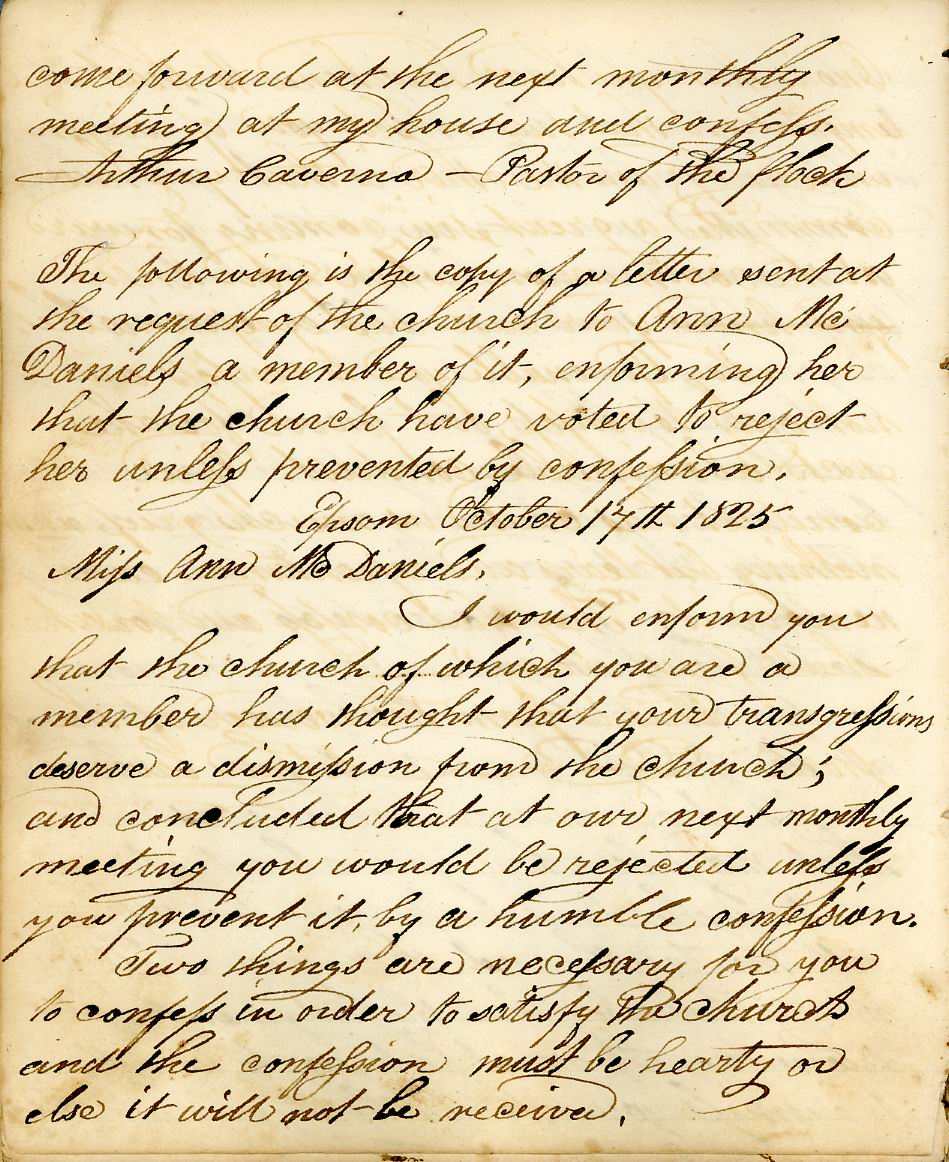 come forward at the next monthly
meeting at my house and confess.
Arthur Caverno – Pastor of the flock
The following is the copy of a letter sent at
the request of the church to Ann Mc
Daniels a member of it, enforming her
that the church have voted to reject
her unless prevented by confession.
Epsom October 17th 1825
Miss Ann Mc Daniels.
I would enform you
that the church of which you are a
member has thought that your transgressions
deserve a dismission from the church;
and concluded that at our next monthly
meeting you would be rejected unless
you prevent it, by a humble confession.
Two things are necessary for you
to confess in order to satisfy the church
and the confession must be hearty or
else it will not be received.